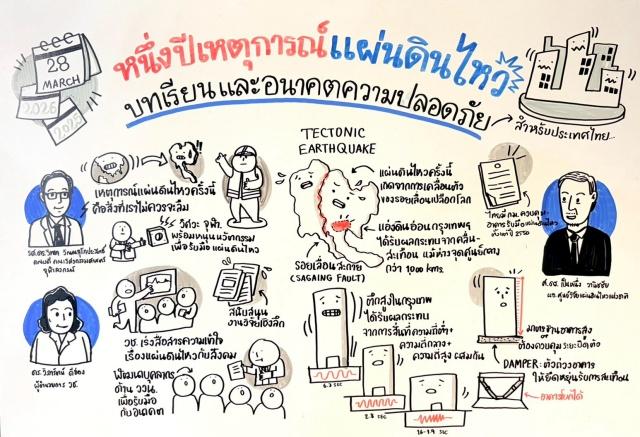 28
MARCH
2026
2025
หนึ่งปีเหตุการณ์แผ่นดินไหว
บทเรียนและอนาคตความปลอดภัย
สำหรับประเทศไทย...
เหตุการณ์แผ่นดินไหวครั้งนี้
คือสิ่งที่เราไม่ควรจะลืม
วิศวะ จุฬาฯ
พร้อมหนุนนวัตกรรม
เพื่อรับมือแผ่นดินไหว
สนับสนุน
งานวิจัยเชิงลึก
วช. เร่งสื่อสารความเข้าใจ
เรื่องแผ่นดินไหวกับสังคม
พัฒนาบุคลากร
ด้าน ววน.
เพื่อรับมือ
กับอนาคต
ผู้อำนวยการ วช.
TECTONIC
EARTHQUAKE
แผ่นดินไหวครั้งนี้
เกิดจากการเคลื่อนตัว
ของรอยเลื่อนเปลือกโลก
แอ่งดินอ่อนกรุงเทพฯ
ได้รับผลกระทบจากคลื่น
สะเทือน แม้ห่างจุดศูนย์กลาง
กว่า 1000 kms.
รอยเลื่อนสะกาย
(SAGAING FAULT)
ตึกสูงในกรุงเทพ
ได้รับผลกระทบ
จากการสั่นที่ความถี่ต่ำ+
ความถี่กลาง+
ความถี่สูง ผสมกัน
2.8 SEC
ไทยมี กม. ควบคุม
อาคารรับมือแผ่นดินไหว
ตั้งแต่ปี 2550
มาตรฐานอาคารสูง
ต้องควบคุมระยะบิดตัว
DAMPER: ตัวถ่วงอาคาร
ให้ยืดหยุ่นรับการสะเทือน